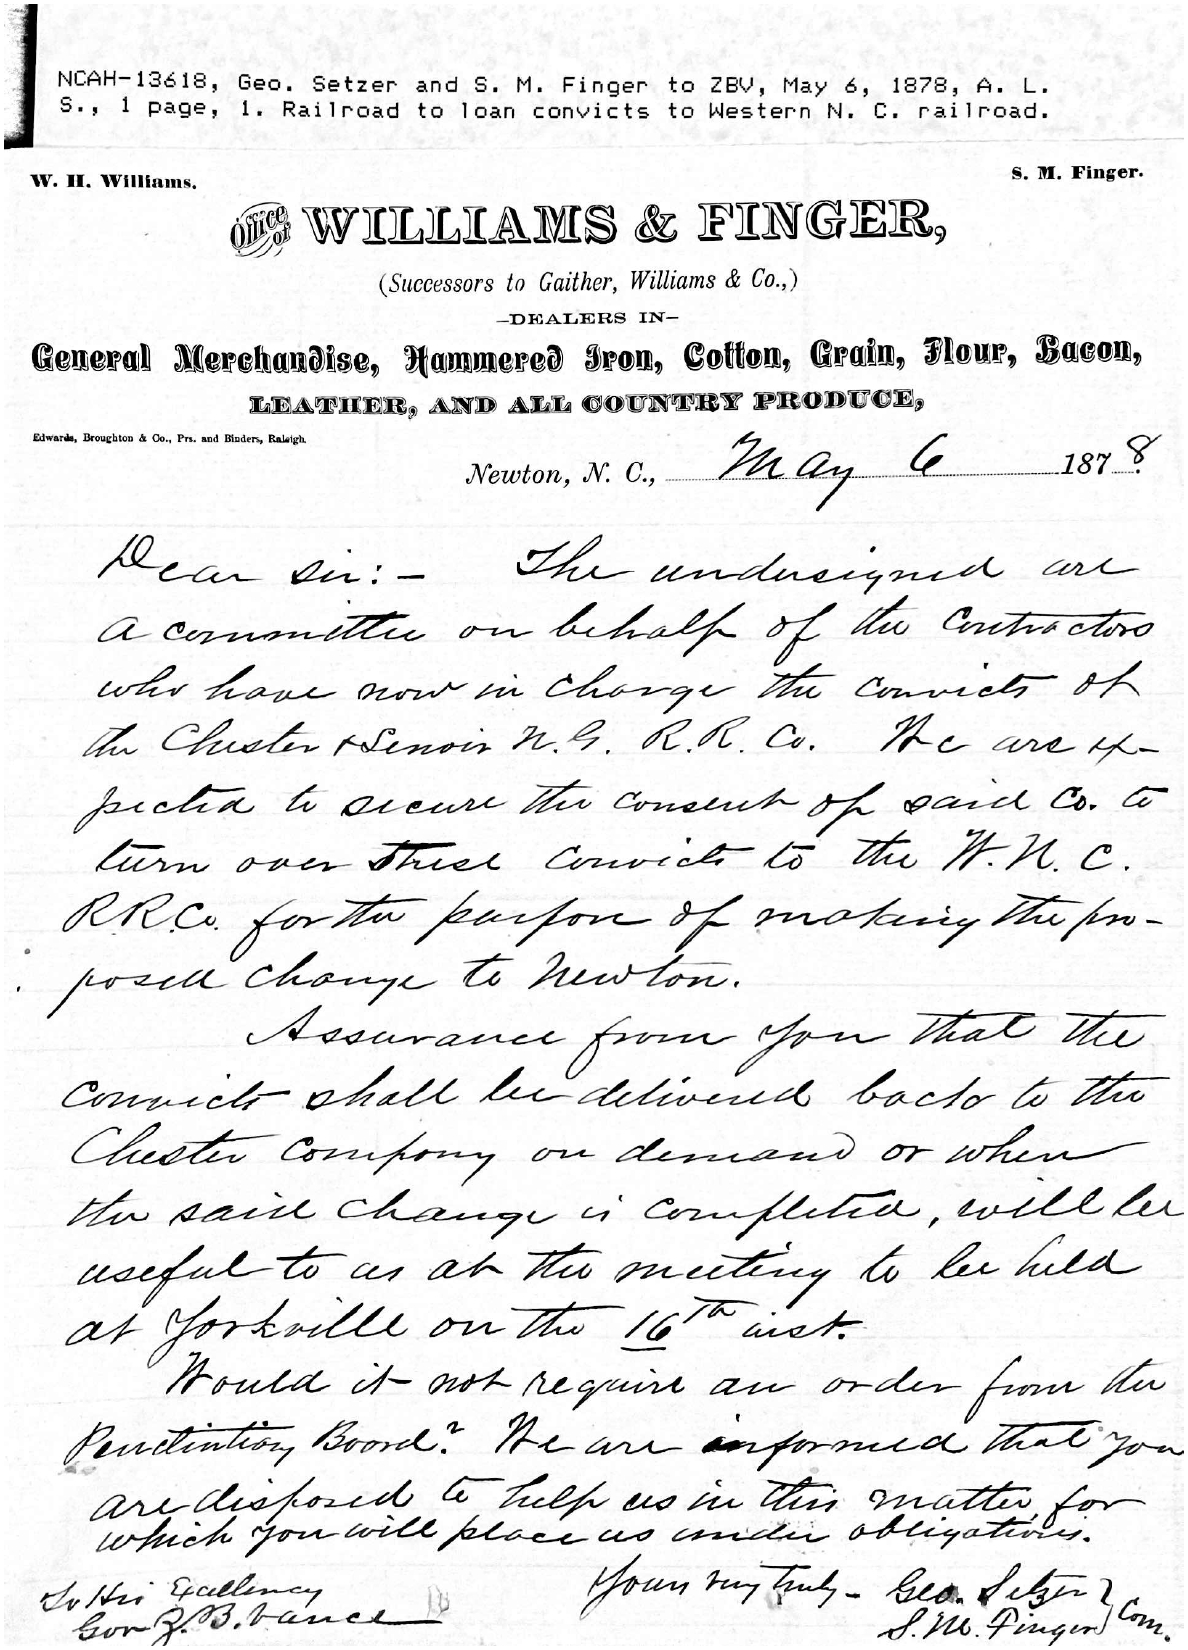 NCAH-13618, Geo. Setzer and S. M. Finger to ZBV, May 6, 1878, A. L.
S., 1 page, 1. Railroad to loan convicts to Western N. C. railroad.
W. H. Williams.
S. M. Finger.
Office of WILLIAMS & FINGER,
(Successors to Gaither, Williams & Co.,)
-DEALERS IN-
General Merchandise, Hammered Iron, Cotton, Grain, Flour, Bacon,
LEATHER, AND ALL COUNTRY PRODUCE,
Edwards, Broughton & Co., Prs. and Binders, Raleigh.
Newton, N. C., May 6 1878.
Dear Sir:- The undersigned are
a committee on behalf of the Contractors
who have now in charge the convicts of
the Chester & Lenoir N. G. R. R. Co. We are ex-
pected to secure the consent of said Co. to
turn over these convicts to the W. N. C.
R R. Co. for the purpose of making the pro-
posed change to Newton.
Assurance from you that the
convicts shall be delivered back to the
Chester Company on demand or when
the said change is completed, will be
useful to us at the meeting to be held
at Yorkville on the 16th inst.
Would it not require an order from the
Penetintiary Board? We are informed that you
are disposed to help us in this matter for
which you will place us under obligations.
Yours very truly - Geo. Setzer } Com.
S. M. Finger
To His Excellency
Gov Z. B. Vance